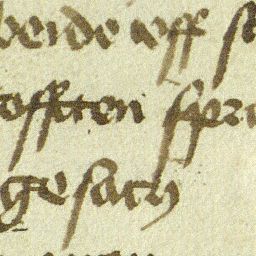 beide off
offten spr
gesach